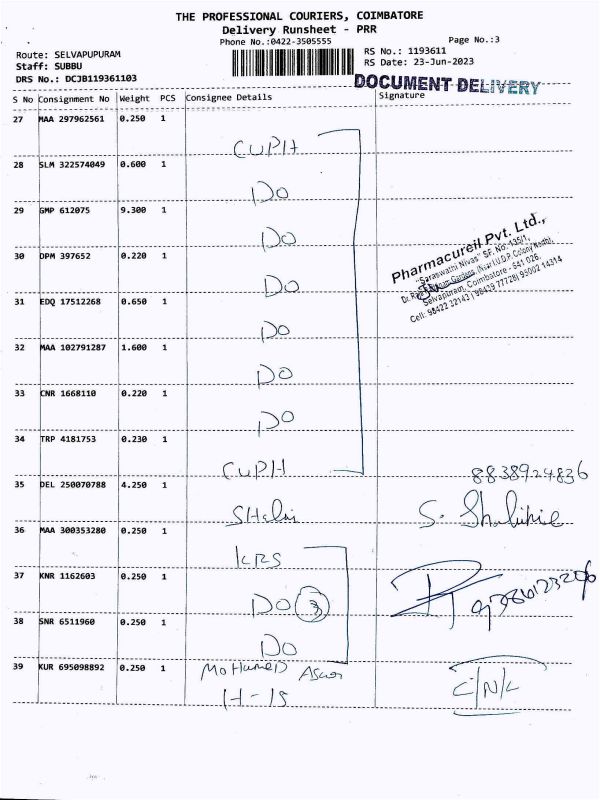 THE PROFESSIONAL COURIERS, COIMBATORE
Delivery Runsheet - PRR
Phone No.:0422-3505555
Page No.:3
Route: SELVAPUPURAM
RS No.: 1193611
Staff: SUBBU
RS Date: 23-Jun-2023
DRS No.: DCJB119361103
DOCUMENT DELIVERY
S No Consignment No Weight PCS Consignee Details Signature
27 MAA 297962561 0.250 1
CUPH
28 SLM 322574049 0.600 1
DO
29 GMP 612075 9.300 1
DO
30 DPM 397652 0.220 1
DO
31 EDQ 17512268 0.650 1
DO
32 MAA 102791287 1.600 1
DO
33 CNR 1668110 0.220 1
DO
34 TRP 4181753 0.230 1
CUPH
Pharmacureil Pvt. Ltd.,
"Saraswathi Nivas" SF. No. 135/1,
Gardens, (Near I.U.D.P. Colony North),
Selvapuram, Coimbatore - 641 026.
Cell: 98422 22143 | 98439 77728 | 95002 14314
35 DEL 250070788 4.250 1
8838924836
Shalini
S. Shalinie
36 MAA 300353280 0.250 1
KRS
37 KNR 1162603 0.250 1
DO 3
38 SNR 6511960 0.250 1
DO
39 KUR 695098892 0.250 1
Mohamed
H-15
C/N/L